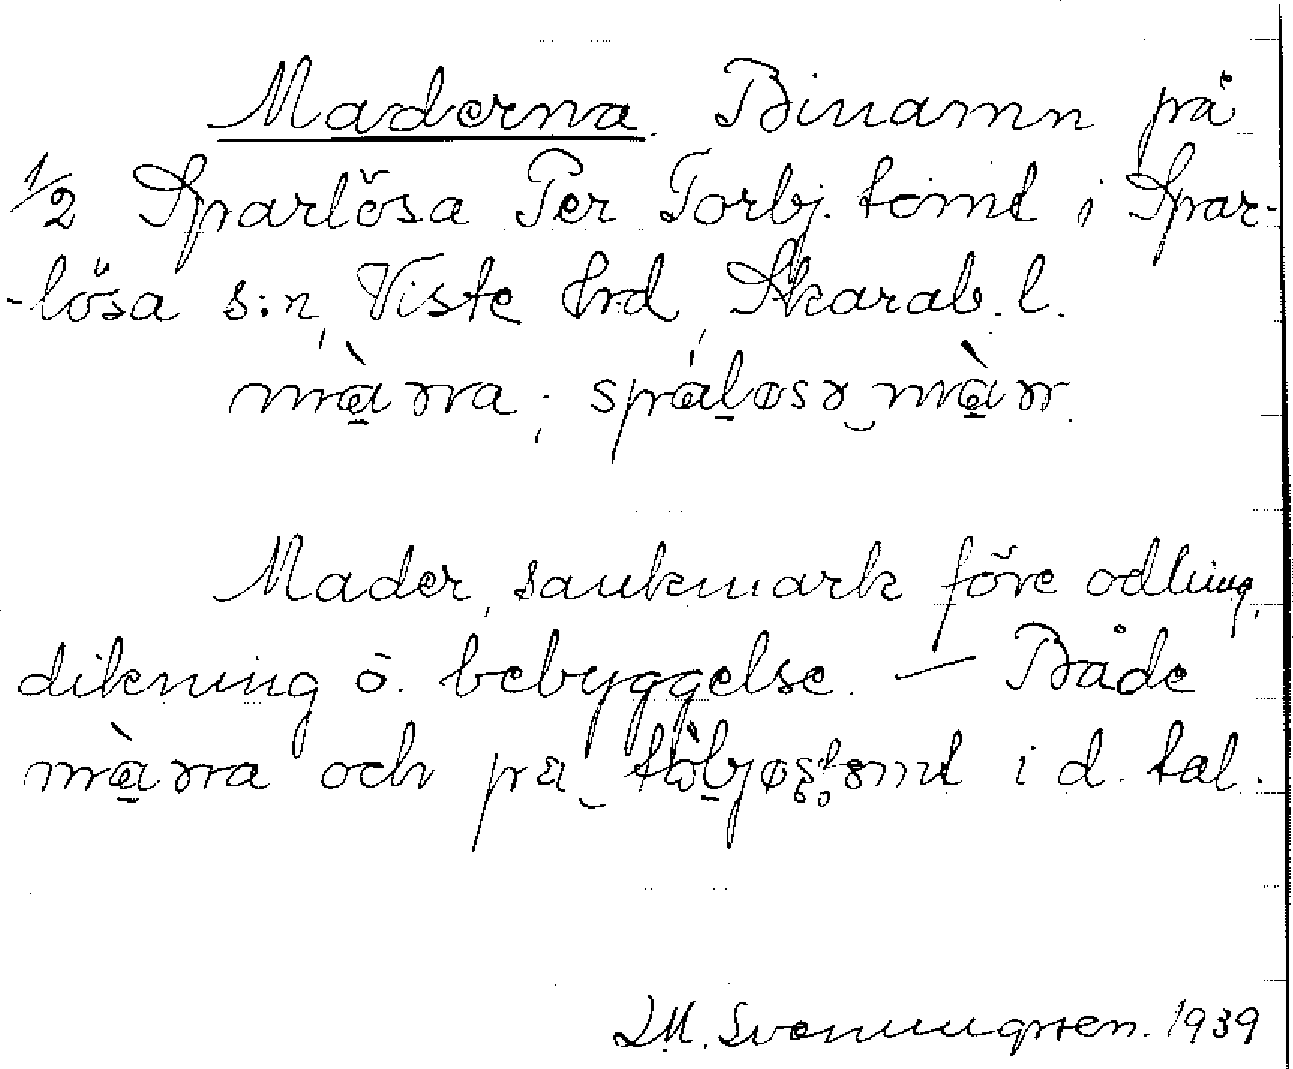 Maderna. Binamn på
1/2 Sparlösa Per Torbj. tomt i Spar-
-lösa s:n, Viste hrd, Skarab. l.
mà̱rra; spá̱løsɤ‿mà̱rr.
Mader, sankmark före odling,
dikning o. bebyggelse. — Både
mà̱rra och pɤ‿ i d. tal.
D.M. Svenungsson. 1939